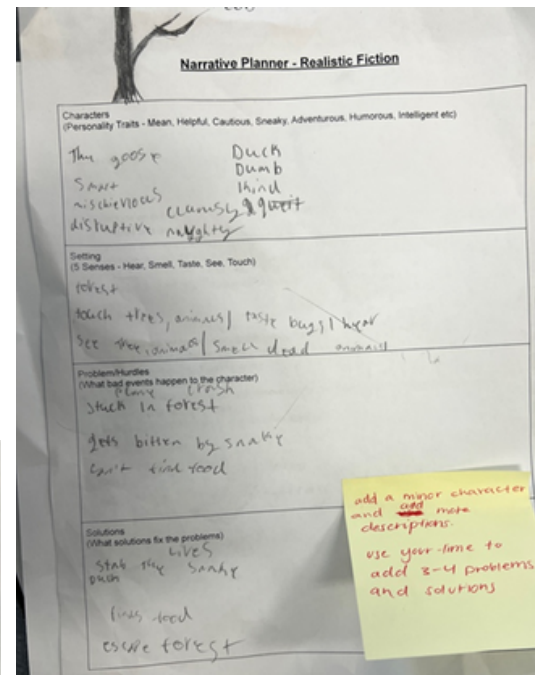 Narrative Planner - Realistic Fiction
Characters
(Personality Traits - Mean, Helpful, Cautious, Sneaky, Adventurous, Humorous, Intelligent etc)
The goose
Smart
mischievious
disruptive naughty
Duck
Dumb
kind
clumsy
Setting
(5 Senses - Hear, Smell, Taste, See, Touch)
forest
touch trees, animals/ taste bugs/ hear
see tree, animals/ smell dead animals
Problem/Hurdles
(What bad events happen to the character)
crash
stuck in forest
gets bitten by snake
can't find food
Solutions
(What solutions fix the problems)
Lives
stab the snake
Duck
finds food
escape forest
add a minor character
and add more
descriptions.
use your time to
add 3-4 problems
and solutions